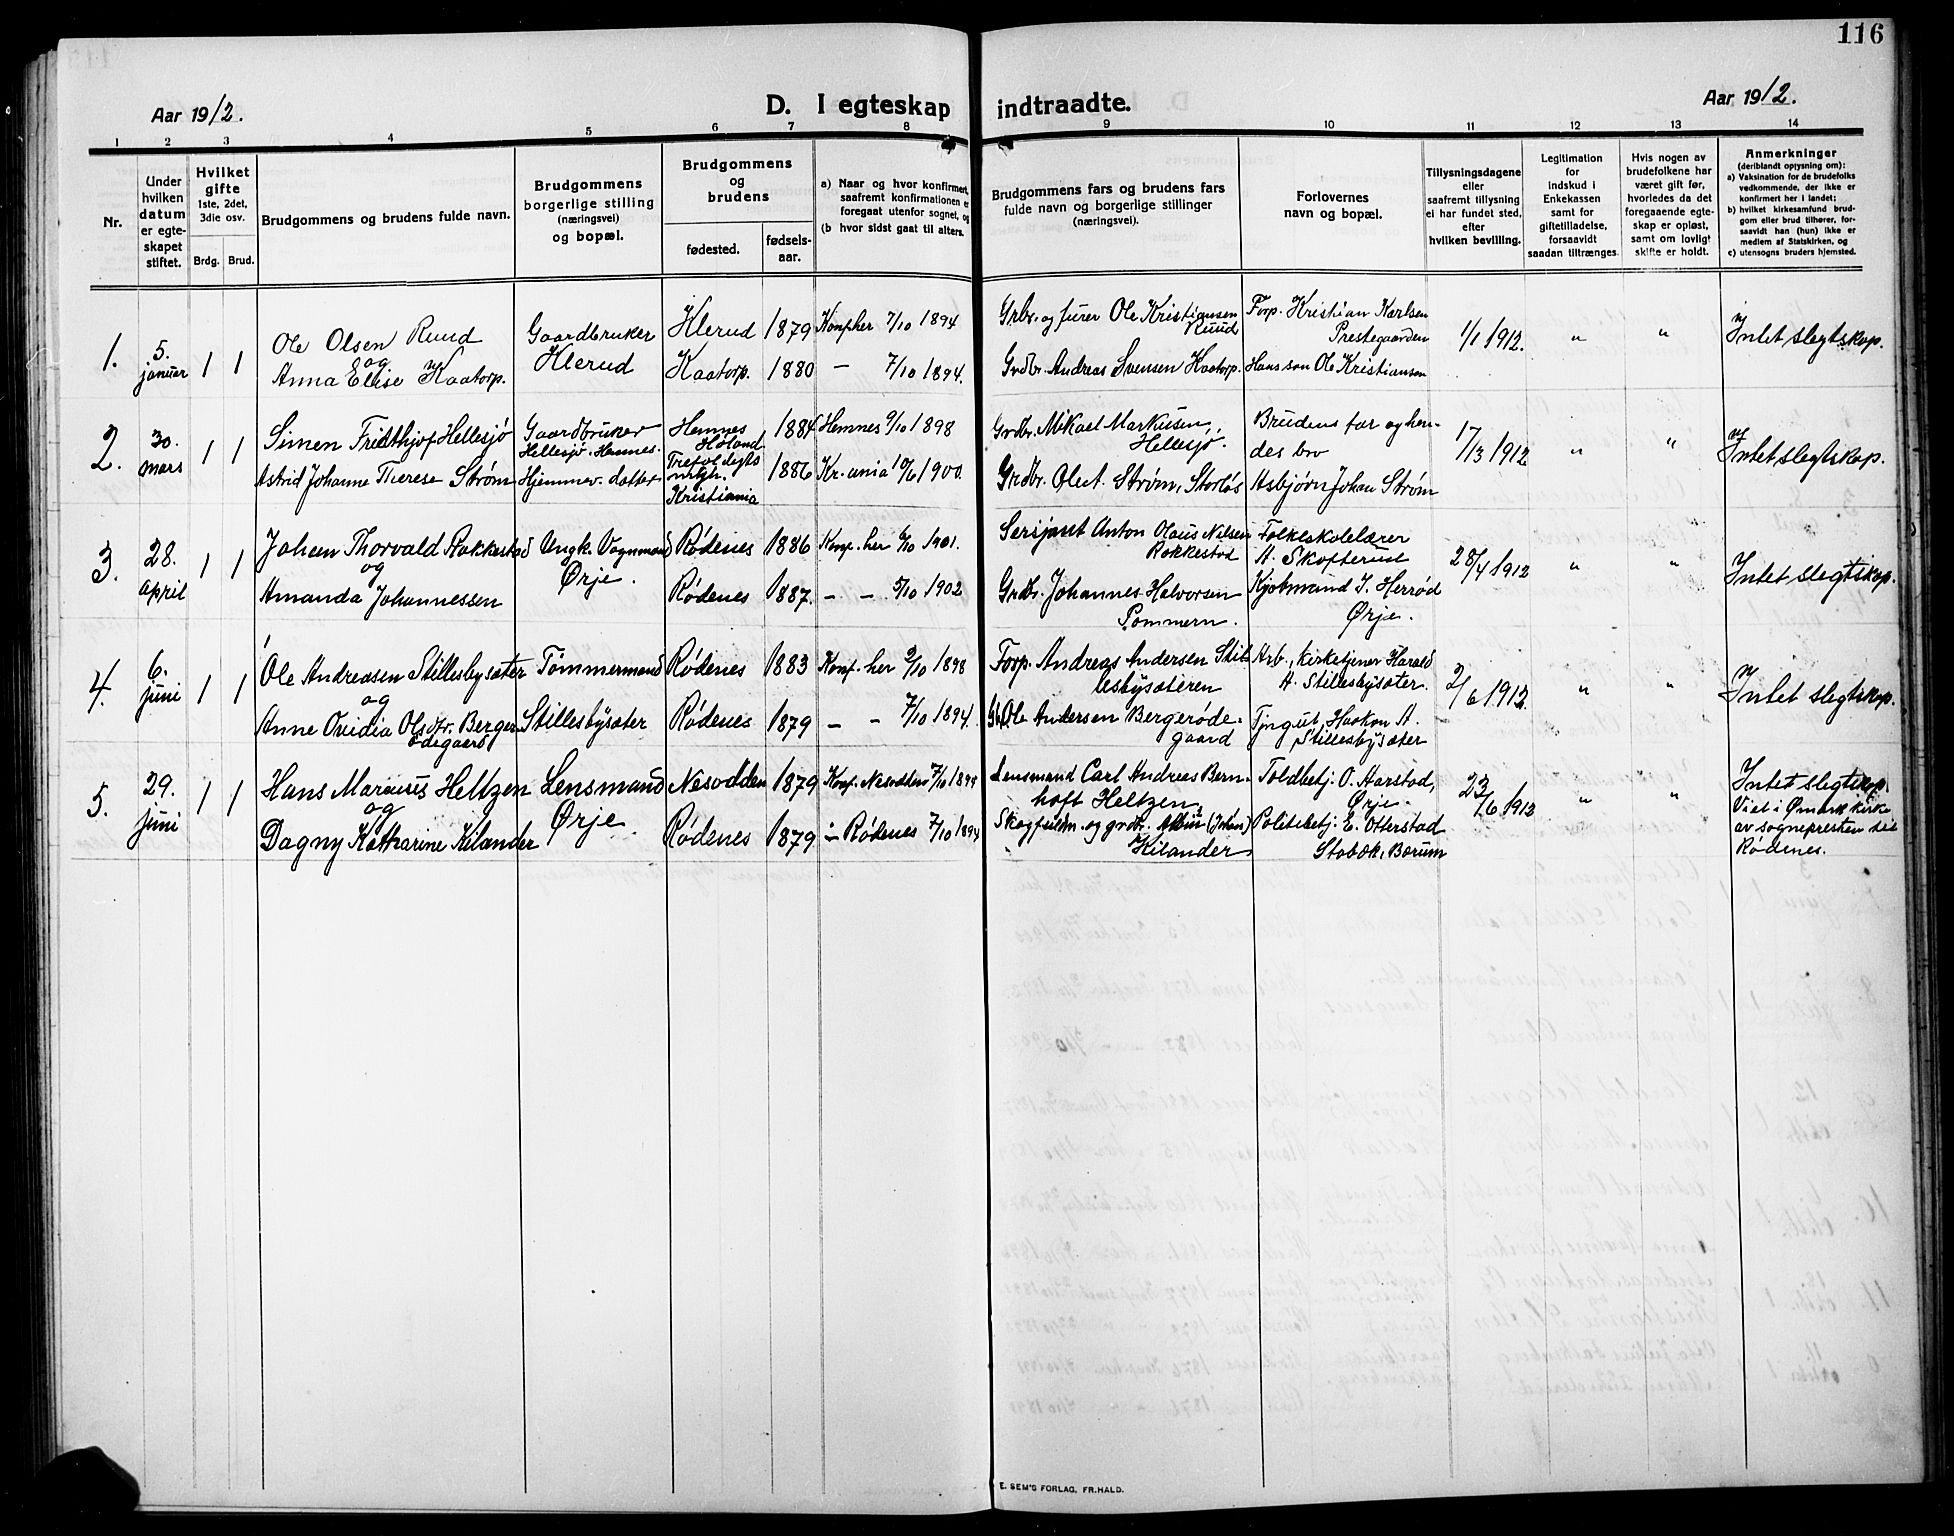 116
Aar 1912.
D. I egteskap indtraadte.
Aar 1912.
1 2 3 4 5 6 7 8 9 10 11 12 13 14
Nr.
Under hvilken datum er egteskapet stiftet.
Hvilket gifte 1ste, 2det, 3die osv.
Brdg. Brud.
Brudgommens og brudens fulde navn.
Brudgommens borgerlige stilling (næringsvei) og bopæl.
Brudgommens og brudens
fødested. fødselsaar.
a) Naar og hvor konfirmert, saafremt konfirmationen er foregaat utenfor sognet, og
(b hvor sidst gaat til alters.
Brudgommens fars og brudens fars fulde navn og borgerlige stillinger (næringsvei).
Forlovernes navn og bopæl.
Tillysningsdagene eller saafremt tillysning ei har fundet sted, efter hvilken bevilling.
Legitimation for indskud i Enkekassen samt for giftetilladelse, forsaavidt saadan tiltrænges.
Hvis nogen av brudefolkene har været gift før, hvorledes da det foregaaende egteskap er opløst, samt om lovligt skifte er holdt.
Anmerkninger
(deriblandt oplysning om):
a) Vaksination for de brudefolks vedkommende, der ikke er konfirmert her i landet;
b) hvilket kirkesamfund brudgom eller brud tilhører, forsaavidt han (hun) ikke er medlem av Statskirken, og
c) utensogns bruders hjemsted.
1. 5. januar 1 1
Ole Olsen Ruud
og
Anna Elise Kaatorp.
Gaardbruker
Klerud
Klerud 1879 Konf. her 7/10 1894
Kaatorp. 1880 — 7/10 1894.
Grbr. og furer Ole Kristiansen Ruud
Grdbr. Andreas Svensen Kaatorp.
Forp. Kristian Karlsen
Prestegaarden
Hans søn Ole Kristiansen
1/1 1912. " "
Intet slegtskap.
2. 30. mars 1 1
Simen Fridthjof Hellesjø
Astrid Johanne Therese Strøm
Gaardbruker
Hellesjø. Hemnes.
Hjemmev. datter
Hemnes
Høland 1884 Hemnes 9/10 1898
Trefoldigts
mgh.
Kristiania 1886 Kr.ania 10/6 1900.
Grdbr. Mikael Markusen,
Hellesjø.
Grdbr. Olaf. Strøm, Storløs
Brudens far og hen-
des bro
Asbjørn Johan Strøm
17/3 1912 " "
Intet slegtskap.
3. 28. april 1 1
Johan Thorvald Rakkestad
og
Amanda Johannessen
Ungk. Vognmand
Ørje.
Rødenes 1886 Konf. her 6/10 1901.
Rødenes 1887. — — 5/10 1902
Sersjant Anton Olaus Nilsen
Rakkestad
Grdbr. Johannes Halvorsen
Pommern.
Folkeskolelærer
A. Skofterud
Kjøbmand J. Herrød
Ørje.
28/4 1912 " "
Intet slegtskap.
4. 6. juni 1 1
Ole Andreasen Stillesbysæter
og
Anne Ovidia Olsdtr. Berger
ødegaard
Tømmermand
Stillesbysæter
Rødenes 1883 Konf. her 9/10 1898
Rødenes 1879 — — 7/10 1894.
Forp. Andreas Andersen Stil-
lesbysæteren
Ole Andersen Bergerøde-
gaard
Arb., kirketjener Harald
A. Stillesbysæter.
Tjngut, Haakon A.
Stillesbysæter
2/6 1912. " "
Intet slegtskap.
5. 29. juni 1 1
Hans Marcius Heltzen
og
Dagny Katharine Kilander
Lensmand
Ørje.
Nesodden 1879 Konf. Nesodden 7/10 1894
Rødenes 1879 — Rødenes 7/10 1894
Lensmand Carl Andreas Bern-
hoft Heltzen
Skogfuldm. og grdbr. Albin (Johan)
Kilander
Toldbetj. O. Aarstad,
Ørje.
Politibetj. E. Otterstad
Stabæk, Bærum
23/6 1912 " "
Intet slegtskap.
Viet i Ømark kirke
av sognepresten til
Rødenes.
E. SEM'S FORLAG, FR.HALD.